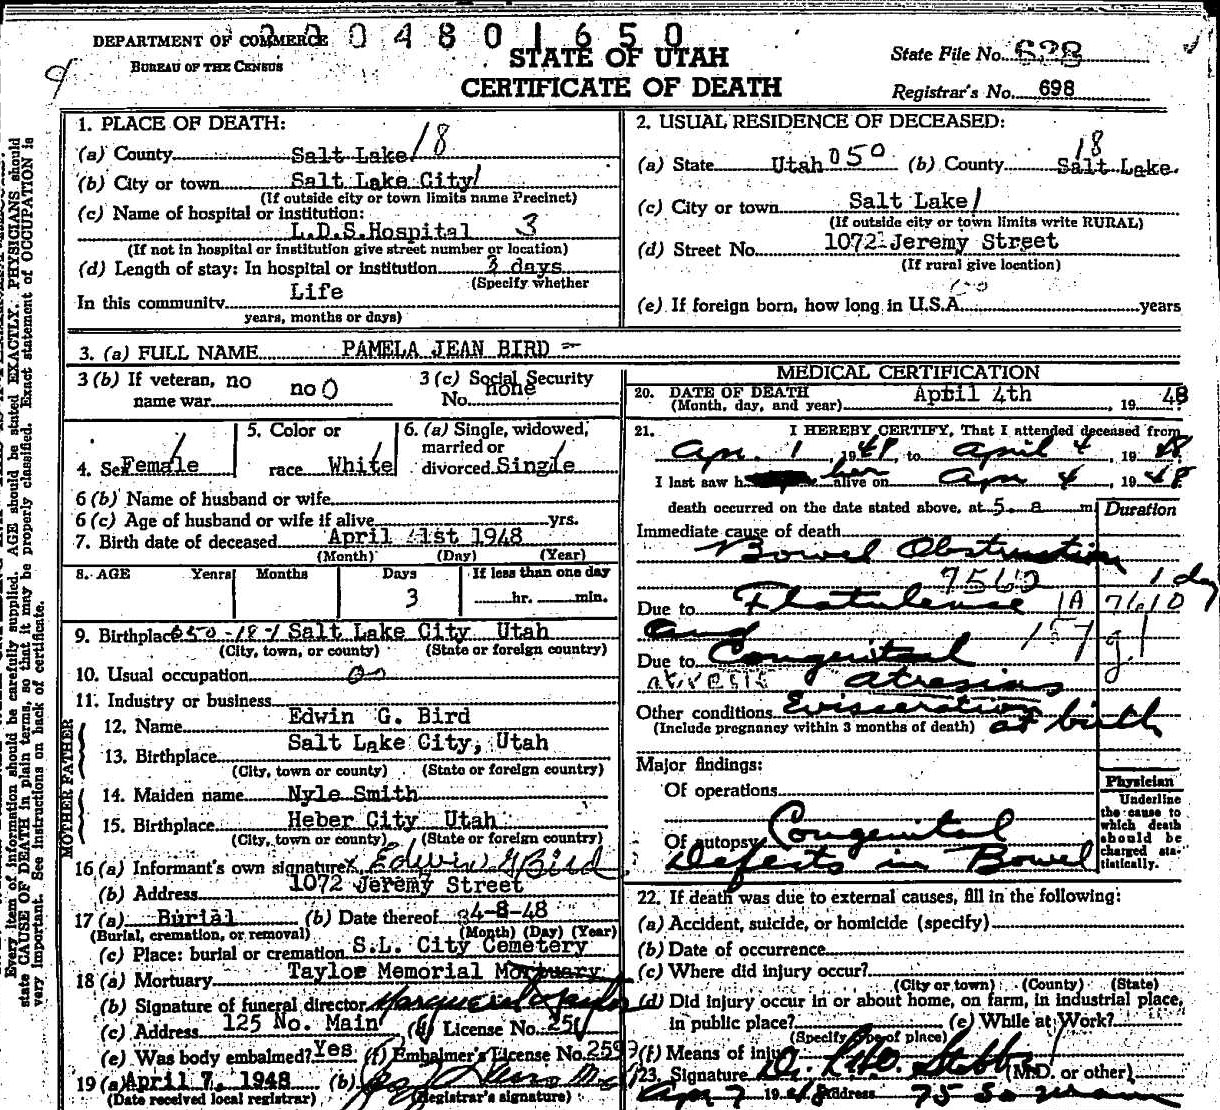 2 0 0 4 8 0 1 6 5 0
DEPARTMENT OF COMMERCE
BUREAU OF THE CENSUS
STATE OF UTAH
CERTIFICATE OF DEATH
State File No. 698
Registrar's No. 698
1. PLACE OF DEATH:
(a) County Salt Lake 18
(b) City or town Salt Lake City 1
(If outside city or town limits name Precinct)
(c) Name of hospital or institution:
L.D.S.Hospital 3
(If not in hospital or institution give street number or location)
(d) Length of stay: In hospital or institution 3 days
(Specify whether
In this community Life
years, months or days)
2. USUAL RESIDENCE OF DECEASED:
(a) State Utah 050 (b) County Salt Lake 18
(c) City or town Salt Lake 1
(If outside city or town limits write RURAL)
(d) Street No. 1072 Jeremy Street
(If rural give location)
(e) If foreign born, how long in U.S.A. years
3. (a) FULL NAME PAMELA JEAN BIRD
3 (b) If veteran, no
name war no 0
3 (c) Social Security
No. none
4. Sex Female
5. Color or
race White
6. (a) Single, widowed,
married or
divorced Single
6 (b) Name of husband or wife
6 (c) Age of husband or wife if alive yrs.
7. Birth date of deceased April 1st 1948
(Month) (Day) (Year)
8. AGE Years Months Days If less than one day
3 hr. min.
9. Birthplace 050-18-1 Salt Lake City Utah
(City, town, or county) (State or foreign country)
10. Usual occupation
11. Industry or business
FATHER
12. Name Edwin G. Bird
13. Birthplace Salt Lake City, Utah
(City, town or county) (State or foreign country)
MOTHER
14. Maiden name Nyle Smith
15. Birthplace Heber City Utah
(City, town or county) (State or foreign country)
16 (a) Informant's own signature x Edwin G Bird
(b) Address 1072 Jeremy Street
17 (a) Burial (b) Date thereof 4-8-48
(Burial, cremation, or removal) (Month) (Day) (Year)
(c) Place: burial or cremation S.L. City Cemetery
18 (a) Mortuary Taylor Memorial Mortuary
(b) Signature of funeral director
(c) Address 125 No. Main (d) License No. 251
(e) Was body embalmed? Yes (f) Embalmer's License No. 259
19 (a) April 7, 1948 (b)
(Date received local registrar) (Registrar's signature)
MEDICAL CERTIFICATION
20. DATE OF DEATH April 4th, 19 48
(Month, day, and year)
21. I HEREBY CERTIFY, That I attended deceased from
Apr. 1, 1948, to April 4, 1948
I last saw her alive on Apr 4, 1948
death occurred on the date stated above, at 5 a m. Duration
Immediate cause of death
Bowel Obstruction
7560 1 day
Due to Flatulence 1A 7610
and 157 g.1
Due to Congenital
atresias
Other conditions Evisceration
(Include pregnancy within 3 months of death) at birth
Major findings:
Of operations
Of autopsy Congenital
defects in Bowel
Physician
Underline
the cause to
which death
should be
charged sta-
tistically.
22. If death was due to external causes, fill in the following:
(a) Accident, suicide, or homicide (specify)
(b) Date of occurrence
(c) Where did injury occur?
(City or town) (County) (State)
(d) Did injury occur in or about home, on farm, in industrial place,
in public place? (e) While at Work?
(Specify type of place)
(f) Means of injury
23. Signature (M.D. or other)
Apr 7 1948 Address 75 So
Every item of information should be carefully supplied. AGE should be stated EXACTLY. PHYSICIANS should
state CAUSE OF DEATH in plain terms, so that it may be properly classified. Exact statement of OCCUPATION is
very important. See instructions on back of certificate.